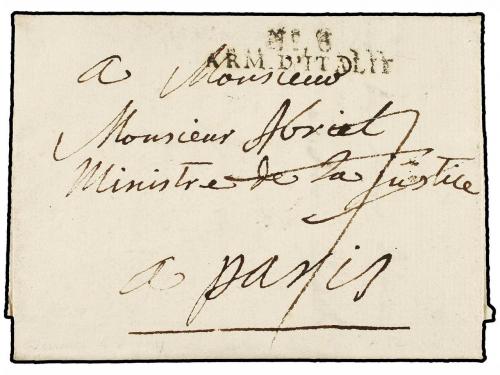 Nº. 6
ARM. D'ITALIE
a Monsieur
Monsieur Abrial
Ministre de la Justice
a paris